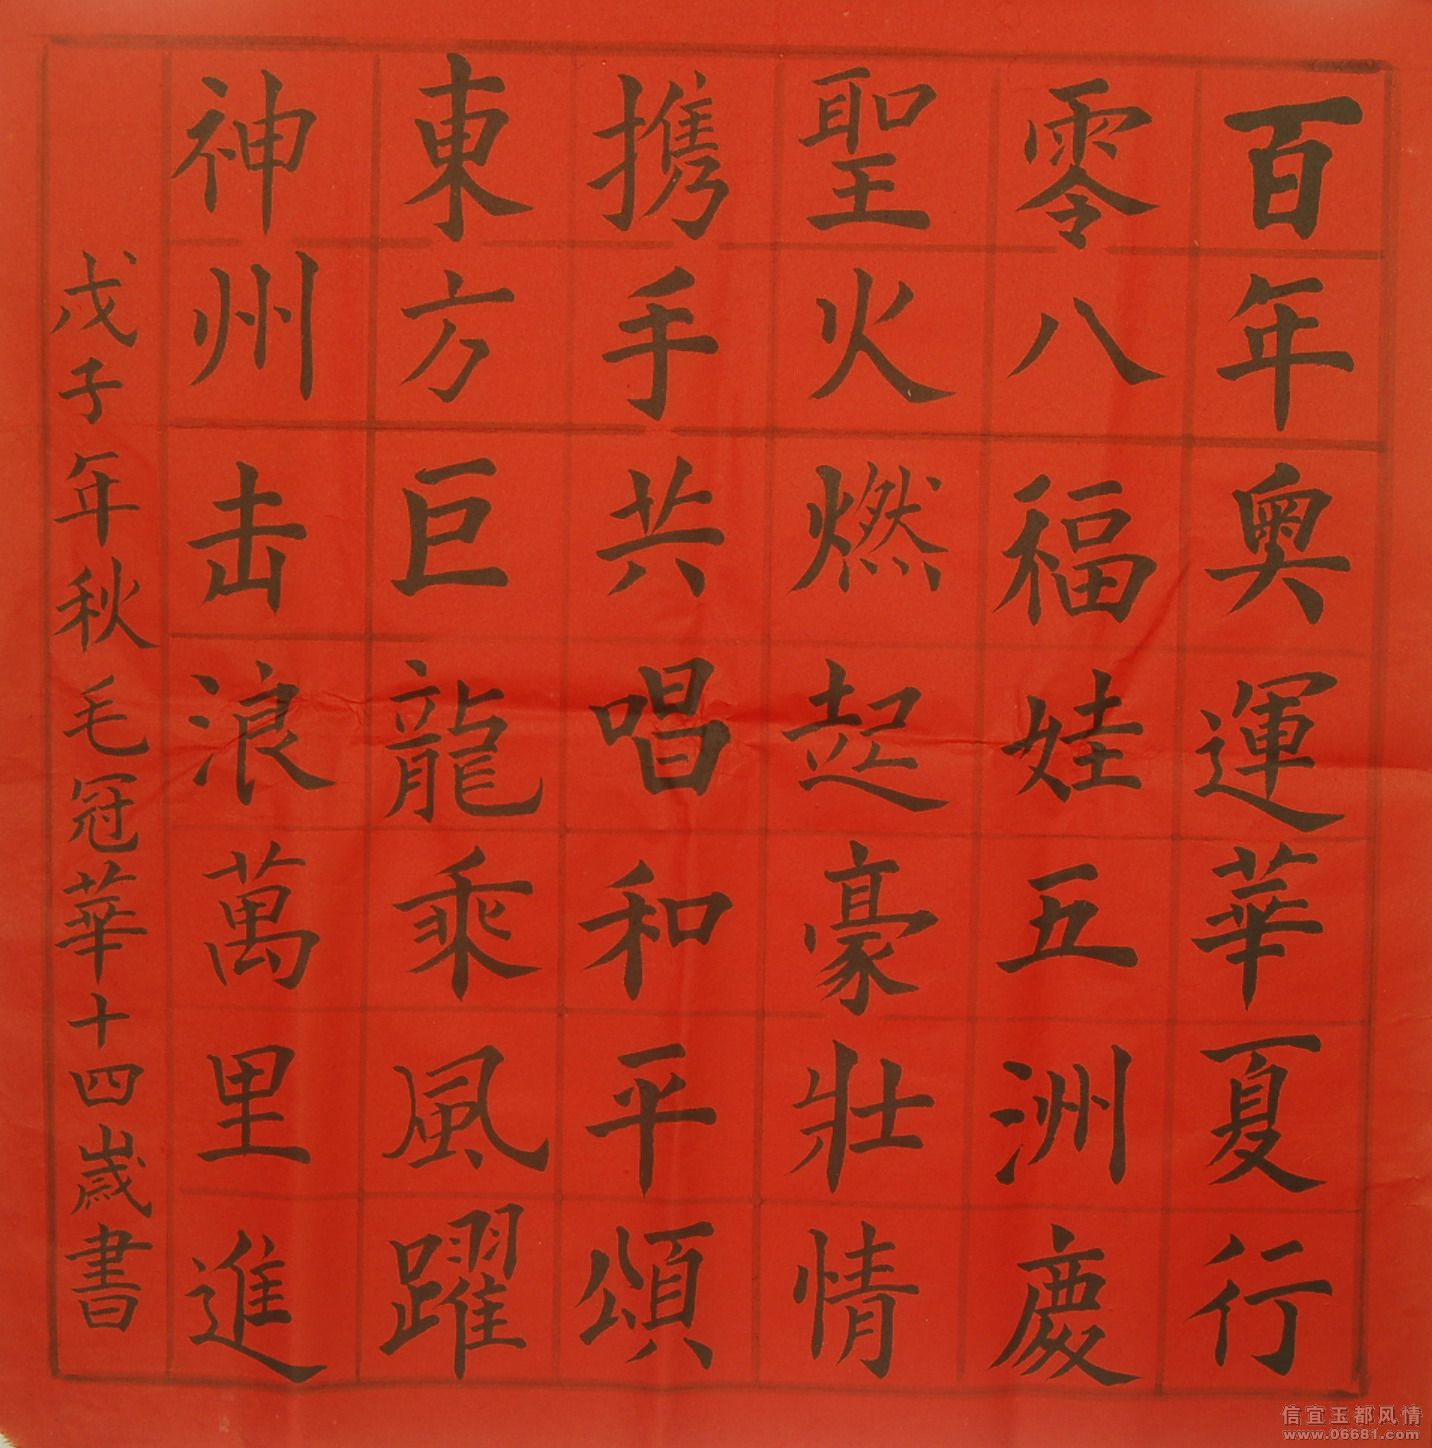 百年奥運華夏行
零八福娃五洲慶
聖火燃起豪壯情
携手共唱和平頌
東方巨龍乘風躍
神州击浪萬里進
戊子年秋毛冠華十四歲書
信宜玉都风情
www.06681.com